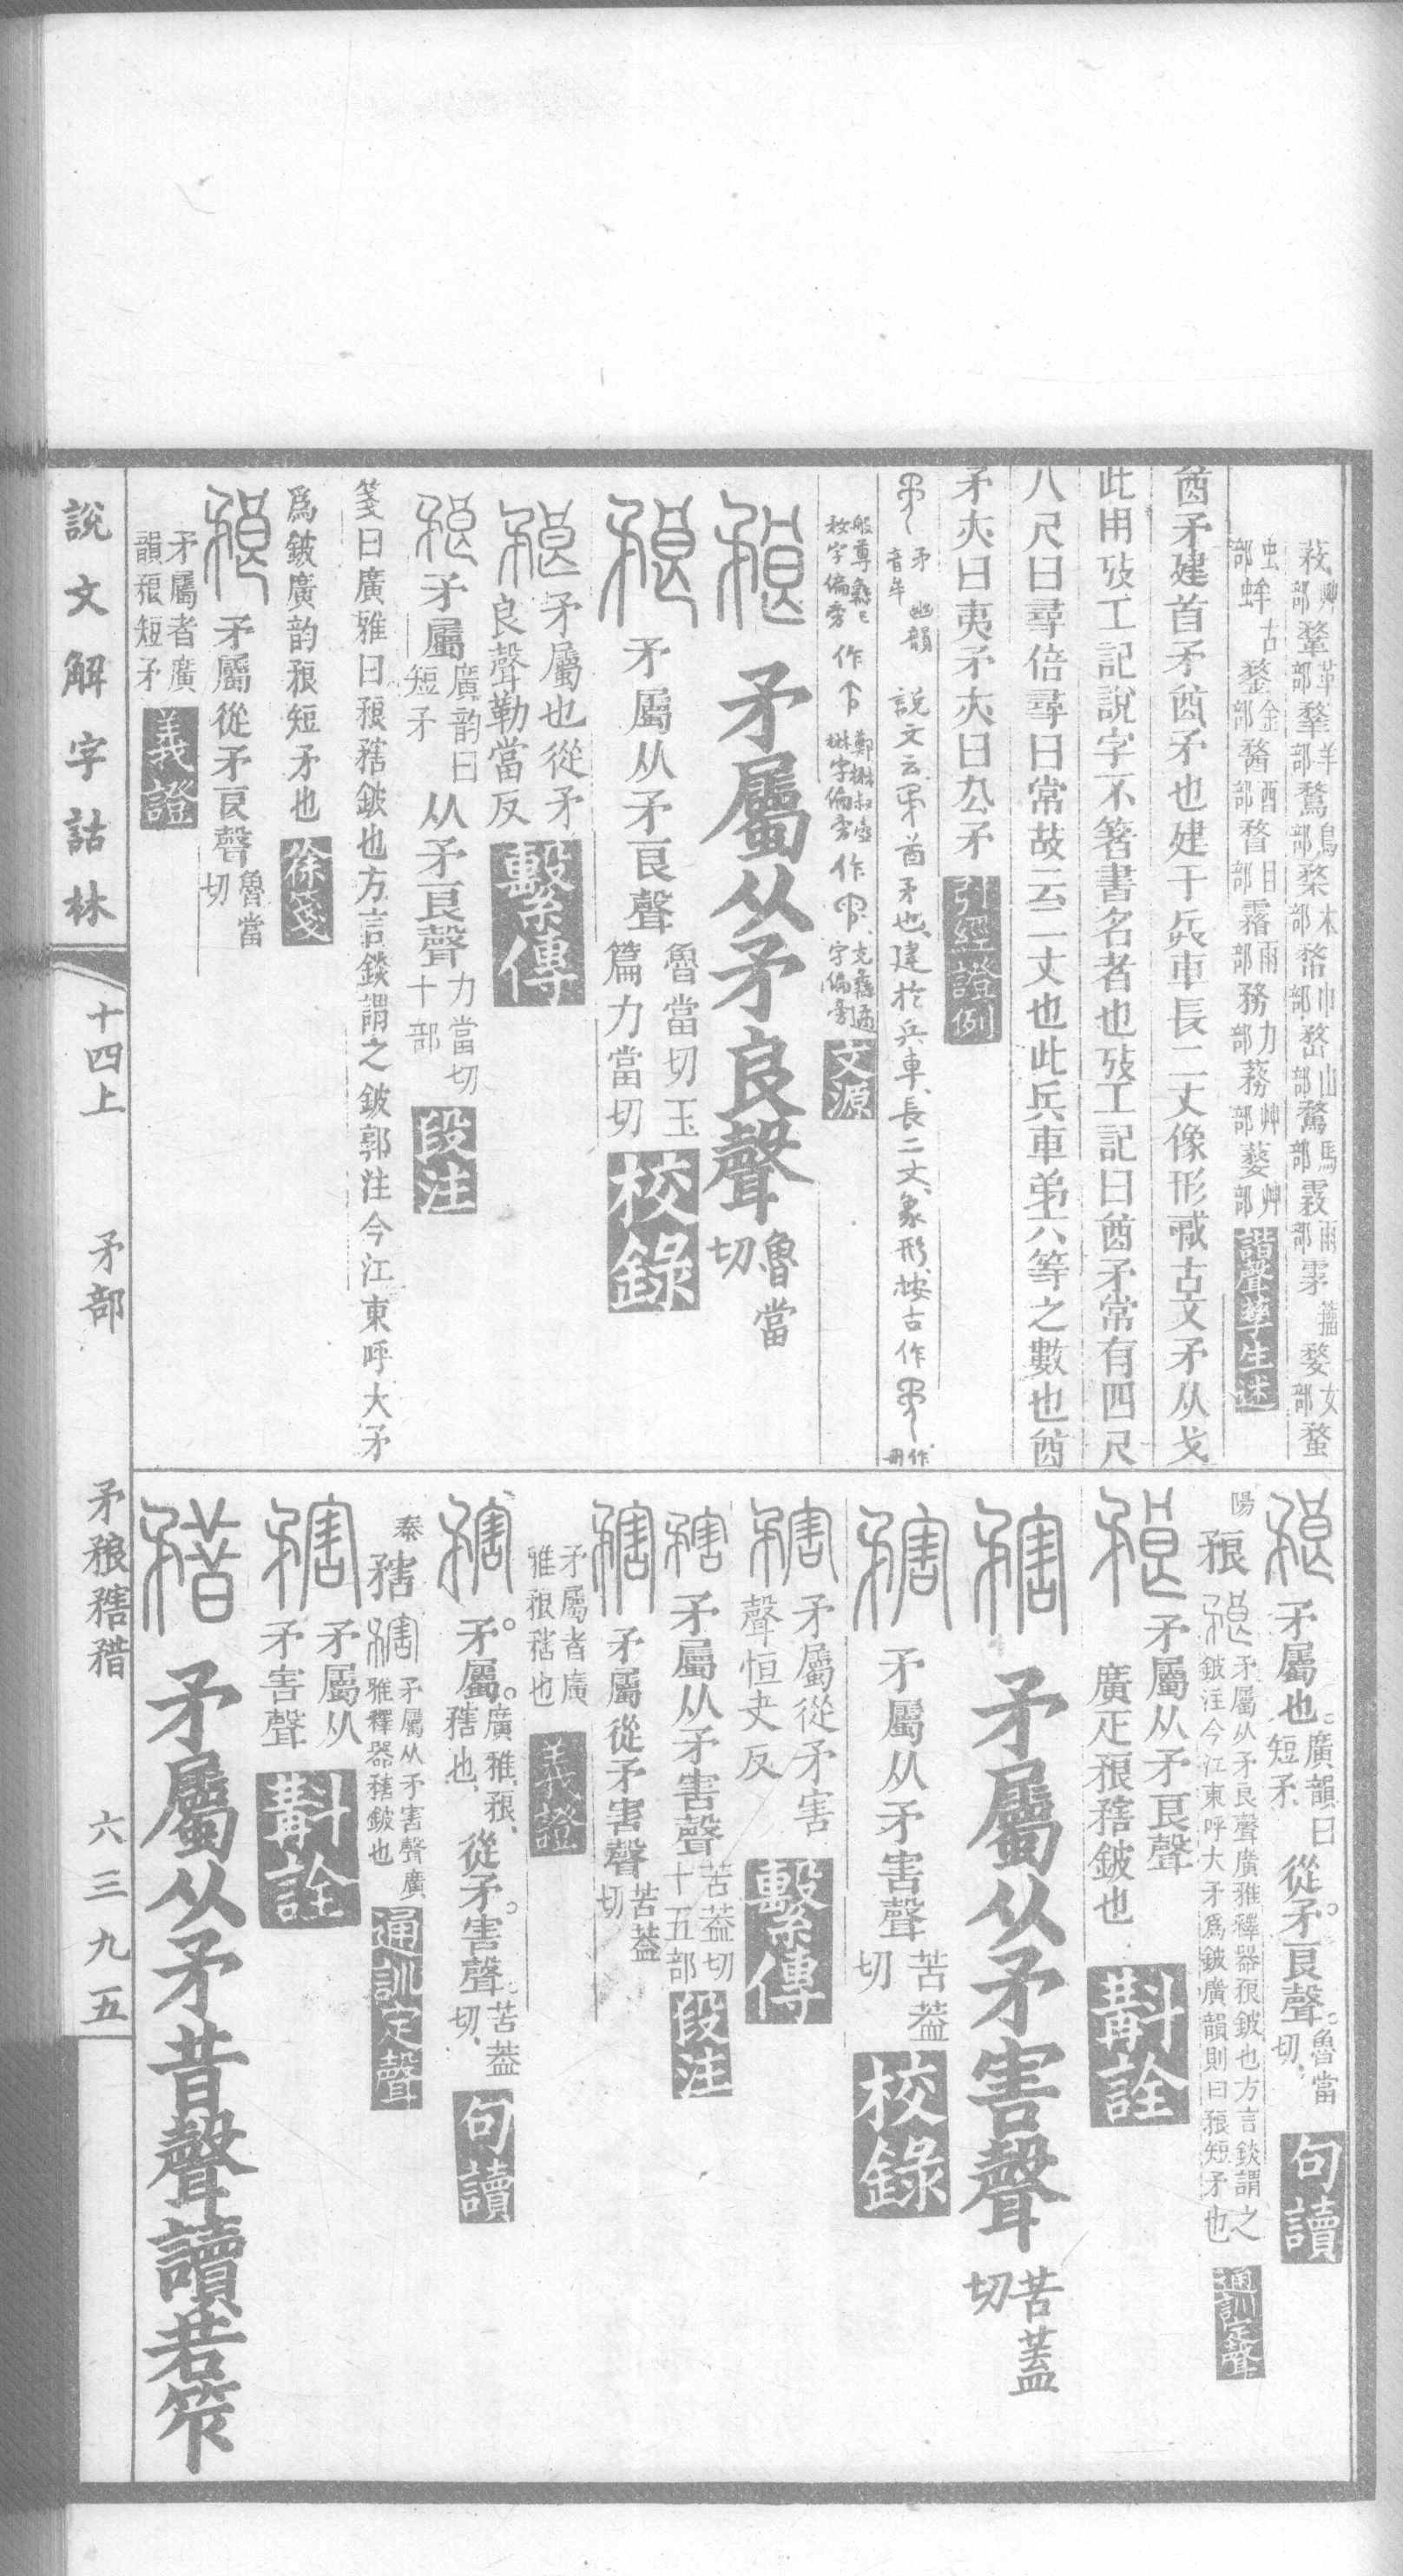 酋矛建首矛酋矛也建于兵車長二丈像形𢦧古文矛从戈
此用攷工記說字不箸書名者也攷工記曰酋矛常有四尺
八尺曰尋倍尋曰常故云二丈也此兵車弟六等之數也酋
矛夶曰夷矛夶曰厹矛 引經證例
矛 音牟 幽韻 說文云酋矛也建於兵車長二丈象形按古作
作 作 文源
矛屬从矛良聲 魯當切
矛屬从矛良聲 魯當切玉篇力當切 校錄
矛屬也從矛良聲勒當反 繫傳
矛屬 廣韵曰短矛 从矛良聲 力當切十部 段注
箋曰廣雅曰䂡𥎆鈹也方言錟謂之鈹郭注今江東呼大矛
爲鈹廣韵䂡短矛也 徐箋
矛屬從矛良聲 魯當切
矛屬者廣韻䂡短矛 義證
矛屬也 廣韻曰短矛 從矛良聲 魯當切 句讀
陽 䂡 矛屬从矛良聲廣雅釋器䂡鈹也方言錟謂之鈹注今江東呼大矛爲鈹廣韻則曰䂡短矛也 通訓定聲
矛屬从矛良聲 廣疋䂡𥎆鈹也 斠詮
矛屬从矛害聲 苦蓋切
矛屬从矛害聲 苦蓋切 校錄
矛屬從矛害聲恒㚘反 繫傳
矛屬从矛害聲 苦蓋切十五部 段注
矛屬從矛害聲 苦蓋切
矛屬者廣雅䂡𥎆也 義證
矛屬 廣雅䂡𥎆也 從矛害聲 苦蓋切 句讀
泰 𥎆 矛屬从矛害聲廣雅釋器𥎆鈹也 通訓定聲
矛屬从矛害聲 斠詮
矛屬从矛昔聲讀若笮
說文解字詁林
十四上
矛部
矛䂡𥎆矠
六三九五